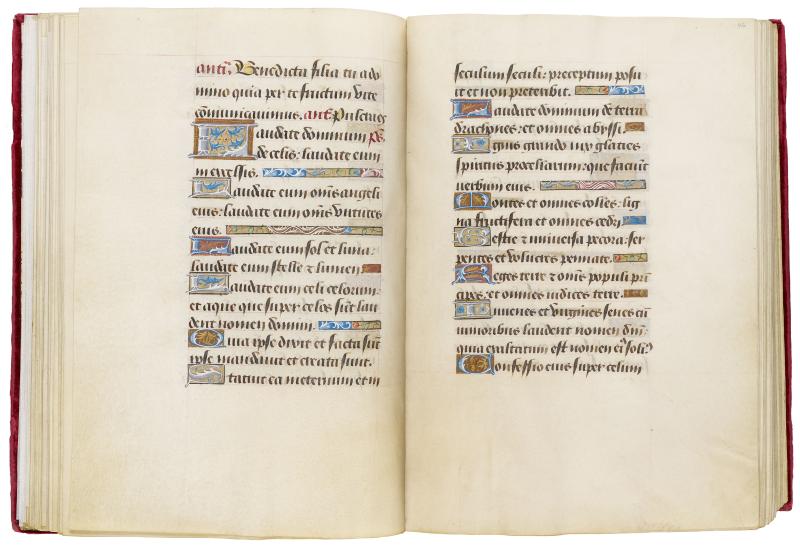 ant̄. Benedicta filia tu a do
mino quia per te fructum vite
cōmunicauimus. ant̄. Pulcra es
Laudate dominum ps̄.
de celis: laudate eum
in excelsis.
Laudate eum om̄s angeli
eius: laudate eum om̄s virtutes
eius.
Laudate eum sol et luna:
laudate eum stelle ⁊ lumen.
Laudate eum celi celorum:
et aque que super celos sūt lau
dent nomen domini.
Quia ipse dixit et facta sūt
ipse mandauit et creata sunt.
Statuit ea in eternum et in
seculum seculi: preceptum posu
it et non preteribit.
Laudate dominum de terra
drachones: et omnes abyssi.
Ignis grando nix glacies
spiritus procellarum: que faciūt
verbum eius.
Montes et omnes colles: lig
na fructifera et omnes cedri.
Bestie ⁊ vniuersa pecora: ser
pentes et volucres pennate.
Reges terre ⁊ om̄s populi prī
cipes: et omnes iudices terre.
Iuuenes et virgines senes cū
iunioribus laudent nomen dn̄i:
quia exaltatum est nomen eiꝰ soliꝰ
Confessio eius super celum